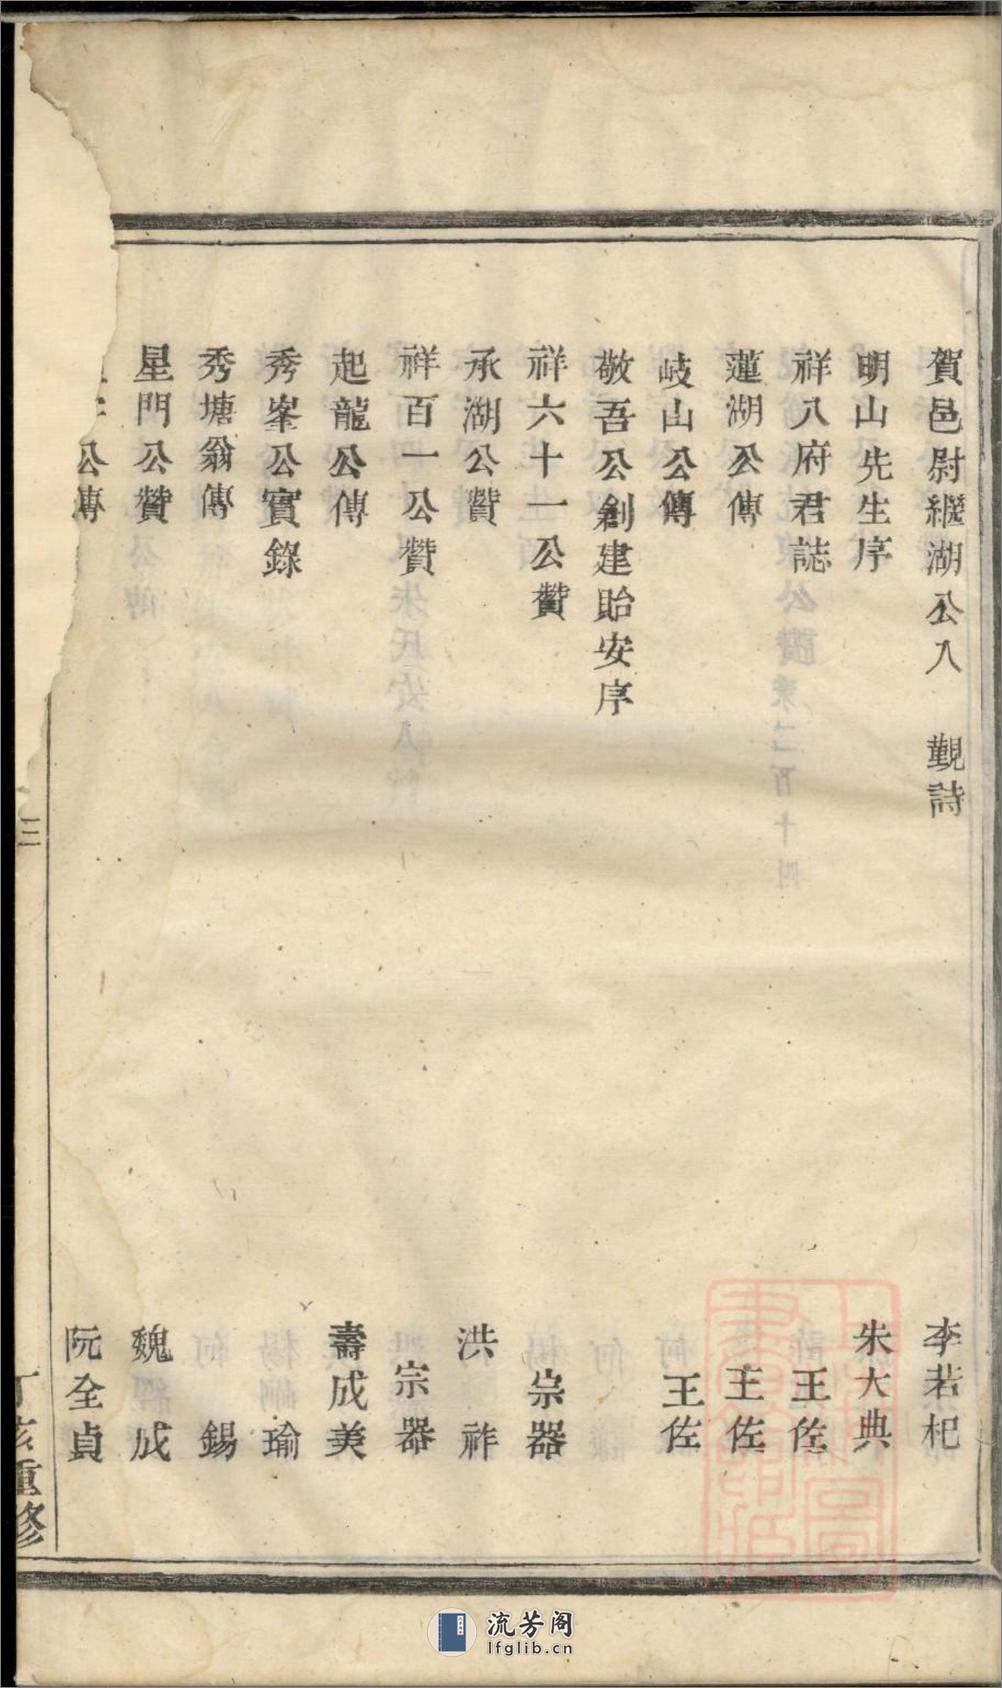 賀邑尉繼湖公入　覲詩　李若杞
明山先生序　朱大典
祥八府君誌　王佐
蓮湖公傳　王佐
岐山公傳　王佐
敬吾公創建貽安序
祥六十一公贊　宗器
承湖公贊　洪祚
祥百一公贊　宗器
起龍公傳　壽成美
秀峯公實錄　瑜
秀塘翁傳　錫
星門公贊　魏成
公傳　阮全貞
三
丁亥重修
流芳阁
lfglib.cn